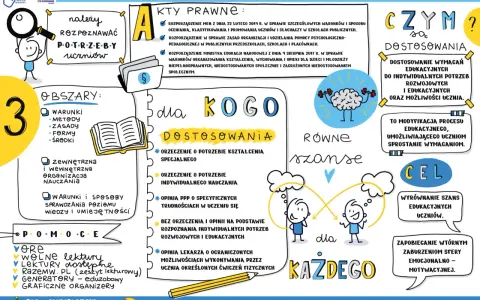 należy
ROZPOZNAWAĆ
POTRZEBY
uczniów
AKTY PRAWNE:
ROZPORZĄDZENIE MEN Z DNIA 22 LUTEGO 2019 R. W SPRAWIE SZCZEGÓŁOWYCH WARUNKÓW I SPOSOBU
OCENIANIA, KLASYFIKOWANIA I PROMOWANIA UCZNIÓW I SŁUCHACZY W SZKOŁACH PUBLICZNYCH.
ROZPORZĄDZENIE W SPRAWIE ZASAD ORGANIZACJI I UDZIELANIA POMOCY PSYCHOLOGICZNO-
PEDAGOGICZNEJ W PUBLICZNYCH PRZEDSZKOLACH, SZKOŁACH I PLACÓWKACH.
ROZPORZĄDZENIE MINISTRA EDUKACJI NARODOWEJ Z DNIA 9 SIERPNIA 2017 R. W SPRAWIE
WARUNKÓW ORGANIZOWANIA KSZTAŁCENIA, WYCHOWANIA I OPIEKI DLA DZIECI I MŁODZIEŻY
NIEPEŁNOSPRAWNYCH, NIEDOSTOSOWANYCH SPOŁECZNIE I ZAGROŻONYCH NIEDOSTOSOWANIEM
SPOŁECZNYM.
§
CZYM
są
DOSTOSOWANIA
DOSTOSOWANIE WYMAGAŃ
EDUKACYJNYCH
DO INDYWIDUALNYCH POTRZEB
ROZWOJOWYCH
I EDUKACYJNYCH
ORAZ MOŻLIWOŚCI UCZNIA.
TO MODYFIKACJA PROCESU
EDUKACYJNEGO,
UMOŻLIWIAJĄCEGO UCZNIOM
SPROSTANIE WYMAGANIOM.
3
OBSZARY:
WARUNKI
- METODY
- ZASADY
- FORMY
- ŚRODKI
ZEWNĘTRZNA
I WEWNĘTRZNA
ORGANIZACJA
NAUCZANIA
WARUNKI I SPOSOBY
SPRAWDZANIA POZIOMU
WIEDZY I UMIEJĘTNOŚCI
dla KOGO
DOSTOSOWANIA
ORZECZENIE O POTRZEBIE KSZTAŁCENIA
SPECJALNEGO
ORZECZENIE O POTRZEBIE
INDYWIDUALNEGO NAUCZANIA
OPINIA PPP O SPECYFICZNYCH
TRUDNOŚCIACH W UCZENIU SIĘ
BEZ ORZECZENIA I OPINII NA PODSTAWIE
ROZPOZNANIA INDYWIDUALNYCH POTRZEB
ROZWOJOWYCH I EDUKACYJNYCH
OPINIA LEKARZA O OGRANICZONYCH
MOŻLIWOŚCIACH WYKONYWANIA PRZEZ
UCZNIA OKREŚLONYCH ĆWICZEŃ FIZYCZNYCH
RÓWNE
szanse
dla
KAŻDEGO
CEL
WYRÓWNANIE SZANS
EDUKACYJNYCH
UCZNIÓW.
ZAPOBIEGANIE WTÓRNYM
ZABURZENIOM SFERY
EMOCJONALNO -
MOTYWACYJNEJ.
POMOCE
ORE
WOLNE lektury
LEKTURY dostępne
RAZEMW.PL (zeszyt lekturowy)
GENERATORY - eduzabawy
GRAFICZNE ORGANIZERY